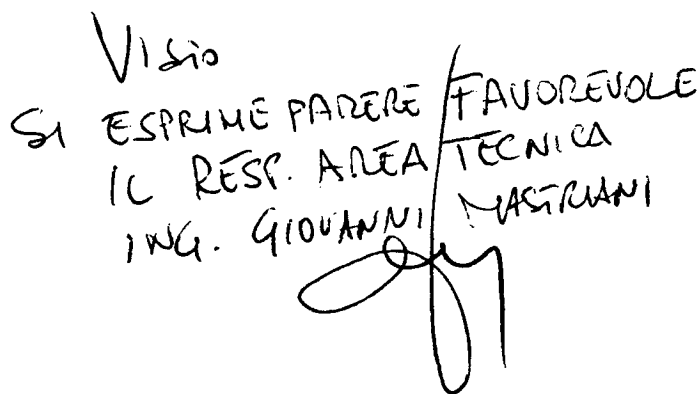 Visto
SI ESPRIME PARERE FAVOREVOLE
IL RESP. AREA TECNICA
ING. GIOVANNI MASTRIANI